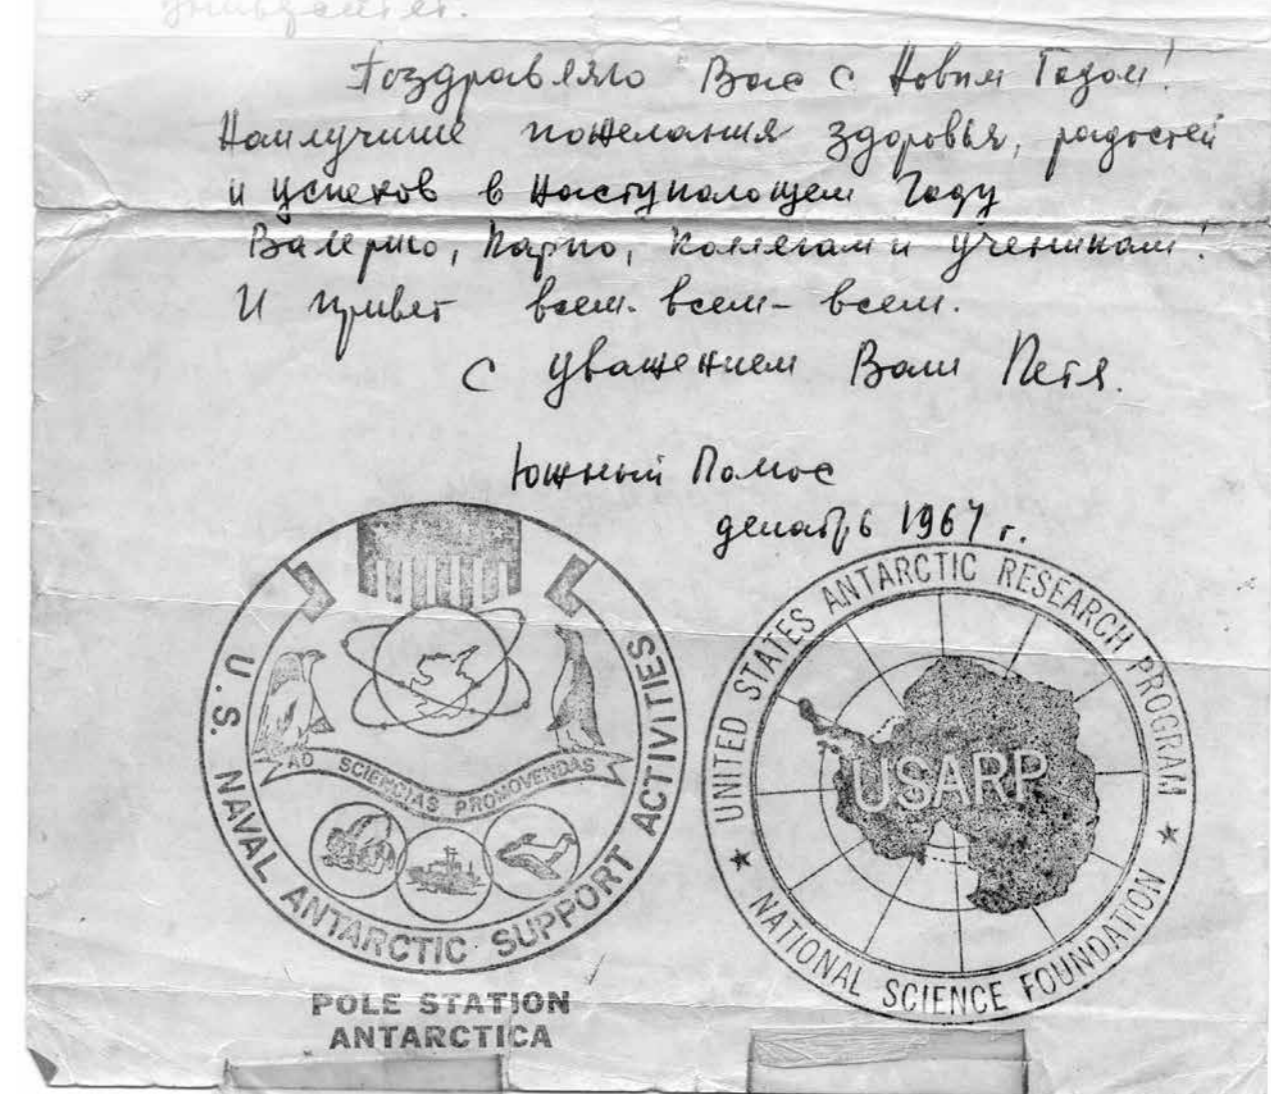 Поздравляю Вас с Новым Годом!
Наилучшие пожелания здоровья, радостей
и успехов в наступающем Году
Валерию, Марио, коллегам и ученикам!
И привет всем-всем-всем.
С уважением Ваш Петя.
Южный Полюс
декабрь 1967 г.
U.S. NAVAL ANTARCTIC SUPPORT ACTIVITIES
AD SCIENCIAS PROMOVENDAS
POLE STATION
ANTARCTICA
UNITED STATES ANTARCTIC RESEARCH PROGRAM
USARP
★ NATIONAL SCIENCE FOUNDATION ★